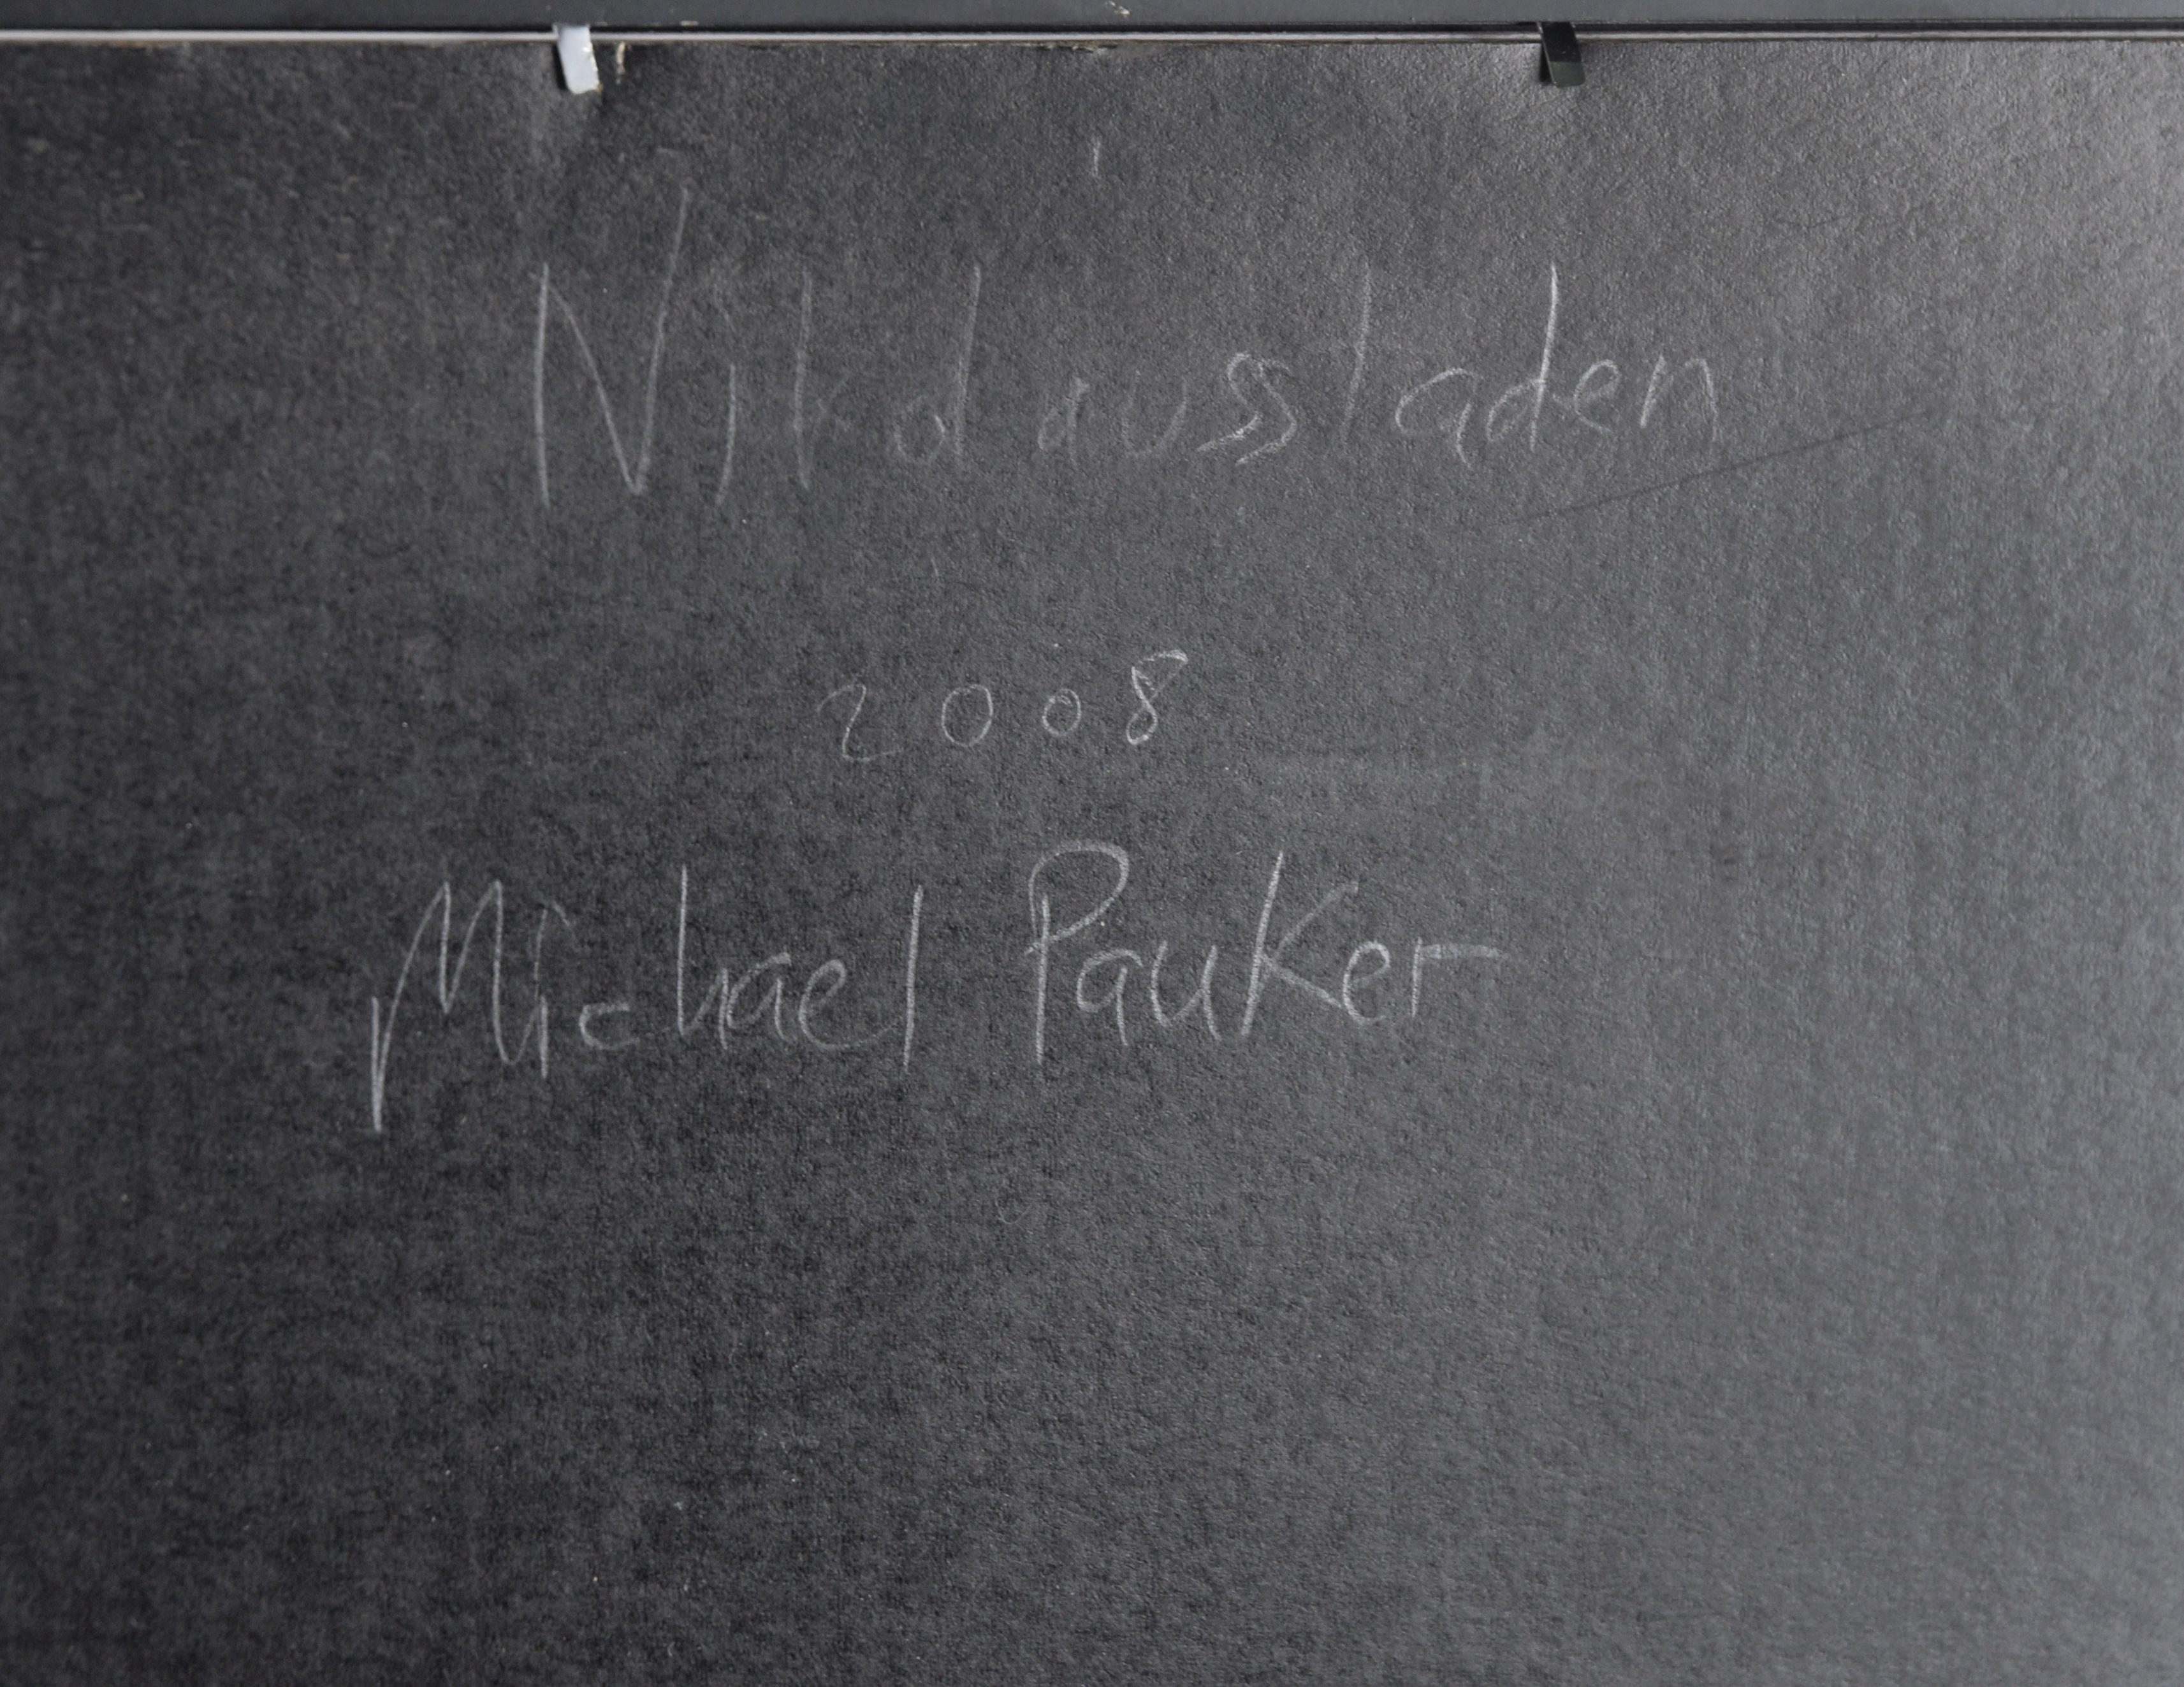 Nikolausstaden
2008
Michael Pauker